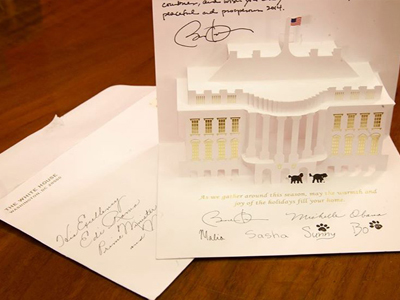 countries, and wish you a
peaceful and prosperous 2014.
THE WHITE HOUSE
WASHINGTON, DC 20500
His Excellency
Edi Rama
Prime Minister
and
As we gather around this season, may the warmth and
joy of the holidays fill your home.
Michelle Obama
Malia Sasha Sunny Bo